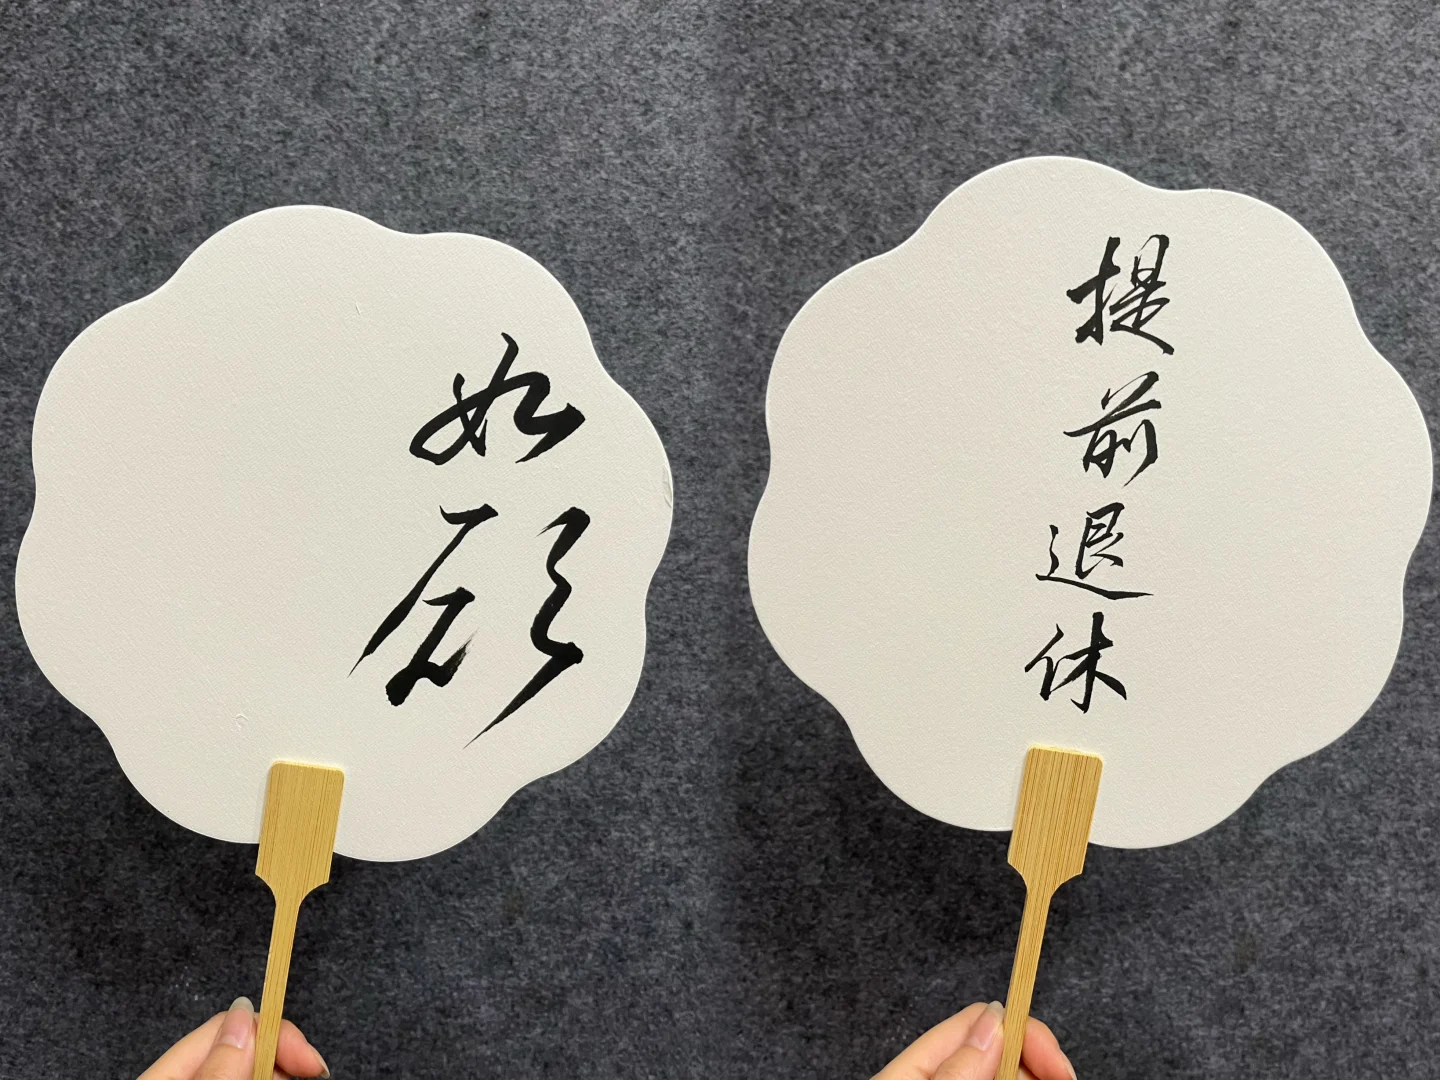 如愿
提前退休